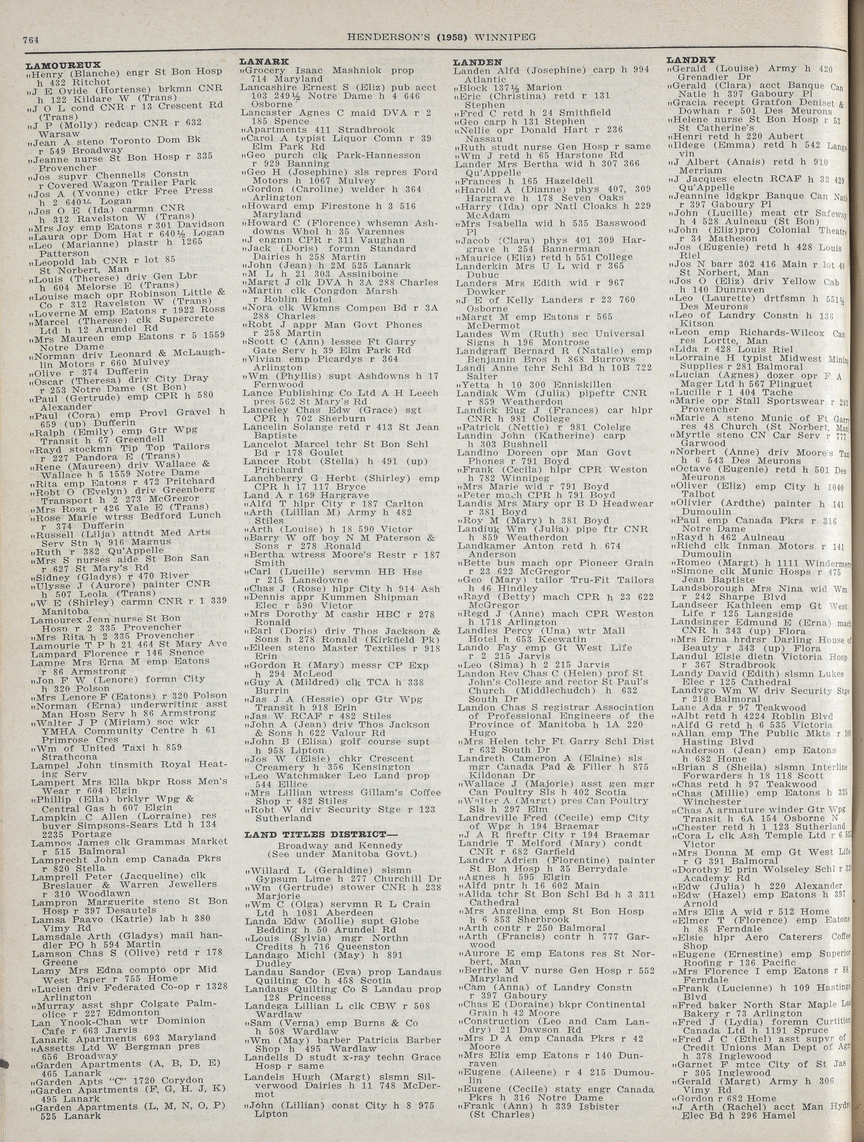 764
HENDERSON'S (1958) WINNIPEG
LAMOUREUX
"Henry (Blanche) engr St Bon Hosp
h 432 Ritchot
"J E Ovide (Hortense) brkmn CNR
h 122 Kildare W (Trans)
"J O L cond CNR r 13 Crescent Rd
(Trans)
"J P (Molly) redcap CNR r 632
Warsaw
"Jean A steno Toronto Dom Bk
r 549 Broadway
"Jeanne nurse St Bon Hosp r 335
Provencher
"Jos supvr Chennells Constn
r Covered Wagon Trailer Park
"Jos A (Yvonne) ctkr Free Press
h 2 640½ Logan
"Jos O E (Ida) carmn CNR
h 312 Ravelston W (Trans)
"Mrs Joy emp Eatons r 301 Davidson
"Laura opr Dom Hat r 640½ Logan
"Leo (Marianne) plastr h 1265
Patterson
"Leopold lab CNR r lot 85
St Norbert, Man
"Louis (Therese) driv Gen Lbr
h 604 Melorse E (Trans)
"Louise mach opr Robinson Little &
Co r 312 Ravelston W (Trans)
"Loverne M emp Eatons r 1922 Ross
"Marcel (Therese) clk Supercrete
Ltd h 12 Arundel Rd
"Mrs Maureen emp Eatons r 5 1559
Notre Dame
"Norman driv Leonard & McLaugh-
lin Motors r 660 Mulvey
"Olive r 374 Dufferin
"Oscar (Theresa) driv City Dray
r 253 Notre Dame (St Bon)
"Paul (Gertrude) emp CPR h 580
Alexander
"Paul (Cora) emp Provl Gravel h
659 (up) Dufferin
"Ralph (Emily) emp Gtr Wpg
Transit h 67 Greendell
"Rayd stockmn Tip Top Tailors
r 227 Pandora E (Trans)
"Rene (Maureen) driv Wallace &
Wallace h 5 1559 Notre Dame
"Rita emp Eatons r 472 Pritchard
"Robt O (Evelyn) driv Greenberg
Transport h 2 273 McGregor
"Mrs Rosa r 426 Yale E (Trans)
"Rose Marie wtrss Bedford Lunch
r 374 Dufferin
"Russell (Lilja) attndt Med Arts
Serv Stn h 916 Magnus
"Ruth r 382 Qu'Appelle
"Mrs S nurses aide St Bon San
r 627 St Mary's Rd
"Sidney (Gladys) r 470 River
"Ulysse J (Aurore) painter CNR
h 507 Leola (Trans)
"W E (Shirley) carmn CNR r 1 339
Manitoba
Lamourex Jean nurse St Bon
Hosp r 2 335 Provencher
"Mrs Rita h 2 335 Provencher
Lamourie T P h 21 464 St Mary Ave
Lampard Florence r 146 Snence
Lampe Mrs Erna M emp Eatons
r 86 Armstrong
"Jon F W (Lenore) formn City
h 320 Polson
"Mrs Lenore P (Eatons) r 320 Polson
"Norman (Erna) underwriting asst
Man Hosp Serv h 86 Armstrong
"Walter J P (Miriam) soc wkr
YMHA Community Centre h 61
Primrose Cres
"Wm of United Taxi h 859
Strathcona
Lampel John tinsmith Royal Heat-
ing Serv
Lampert Mrs Ella bkpr Ross Men's
Wear r 604 Elgin
"Phillip (Ella) brklyr Wpg &
Central Gas h 607 Elgin
Lampkin C Allen (Lorraine) res
buyer Simpsons-Sears Ltd h 134
2235 Portage
Lamnos James clk Grammas Market
r 515 Balmoral
Lamprecht John emp Canada Pkrs
r 820 Stella
Lamprell Peter (Jacqueline) clk
Breslauer & Warren Jewellers
r 310 Woodlawn
Lampron Marguerite steno St Bon
Hosp r 397 Desautels
Lamsa Paavo (Katrie) lab h 380
Vimy Rd
Lamsdale Arth (Gladys) mail han-
dler PO h 594 Martin
Lamson Chas S (Olive) retd r 178
Greene
Lamy Mrs Edna compto opr Mid
West Paper r 755 Home
"Lucien driv Federated Co-op r 1328
Arlington
"Murray asst shpr Colgate Palm-
olice r 227 Edmonton
Lan Ynook-Chan wtr Dominion
Cafe r 663 Jarvis
Lanark Apartments 693 Maryland
"Assetts Ltd W Bergman pres
656 Broadway
"Garden Apartments (A, B, D, E)
465 Lanark
"Garden Apts "C" 1720 Corydon
"Garden Apartments (F, G, H, J, K)
495 Lanark
"Garden Apartments (L, M, N, O, P)
525 Lanark
LANARK
"Grocery Isaac Mashniok prop
714 Maryland
Lancashire Ernest S (Eliz) pub acct
103 249½ Notre Dame h 4 646
Osborne
Lancaster Agnes C maid DVA r 2
185 Spence
"Apartments 411 Stradbrook
"Carol A typist Liquor Comn r 39
Elm Park Rd
"Geo purch clk Park-Hannesson
r 929 Banning
"Geo H (Josephine) sls repres Ford
Motors h 1067 Mulvey
"Gordon (Caroline) welder h 364
Arlington
"Howard emp Firestone h 3 516
Maryland
"Howard C (Florence) whsemn Ash-
downs Whol h 35 Varennes
"J engmn CPR r 311 Vaughan
"Jack (Doris) formn Standard
Dairies h 258 Martin
"John (Jean) h 2M 525 Lanark
"M L h 21 303 Assiniboine
"Margt J clk DVA h 3A 288 Charles
"Martin clk Congdon Marsh
r Roblin Hotel
"Nora clk Wkmns Compen Bd r 3A
288 Charles
"Robt J appr Man Govt Phones
r 258 Martin
"Scott C (Ann) lessee Ft Garry
Gate Serv h 39 Elm Park Rd
"Vivian emp Picardys r 364
Arlington
"Wm (Phyllis) supt Ashdowns h 17
Fernwood
Lance Publishing Co Ltd A H Leech
pres 562 St Mary's Rd
Lanceley Chas Edw (Grace) sgt
CPR h 702 Sherburn
Lancelin Solange retd r 413 St Jean
Baptiste
Lancelot Marcel tchr St Bon Schl
Bd r 178 Goulet
Lancer Robt (Stella) h 491 (up)
Pritchard
Lanchberry G Herbt (Shirley) emp
CPR h 17 117 Bryce
Land A r 169 Hargrave
"Alfd T hlpr City r 187 Carlton
"Arth (Lillian M) Army h 482
Stiles
"Arth (Louise) h 18 590 Victor
"Barry W off boy N M Paterson &
Sons r 278 Ronald
"Bertha wtress Moore's Restr r 187
Smith
"Carl (Lucille) servmn HB Hse
r 215 Lansdowne
"Chas J (Rose) hlpr City h 914 Ash
"Dennis appr Kummen Shipman
Elec r 590 Victor
"Mrs Dorothy M cashr HBC r 278
Ronald
"Earl (Doris) driv Thos Jackson &
Sons h 278 Ronald (Kirkfield Pk)
"Eileen steno Master Textiles r 918
Erin
"Gordon R (Mary) messr CP Exp
h 294 McLeod
"Guy A (Mildred) clk TCA h 338
Burrin
"Jas J A (Hessie) opr Gtr Wpg
Transit h 918 Erin
"Jas W RCAF r 482 Stiles
"John A (Jean) driv Thos Jackson
& Sons h 622 Valour Rd
"John B (Elisa) golf course supt
h 958 Lipton
"Jos W (Elsie) chkr Crescent
Creamery h 356 Kensington
"Leo Watchmaker Leo Land prop
544 Ellice
"Mrs Lillian wtress Gillam's Coffee
Shop r 482 Stiles
"Robt W driv Security Stge r 123
Sutherland
LAND TITLES DISTRICT—
Broadway and Kennedy
(See under Manitoba Govt.)
"Willard L (Geraldine) slsmn
Gypsum Lime h 277 Churchill Dr
"Wm (Gertrude) stower CNR h 238
Marjorie
"Wm C (Olga) servmn R L Crain
Ltd h 1081 Aberdeen
Landa Edw (Mollie) supt Globe
Bedding h 50 Arundel Rd
"Louis (Sylvia) mgr Northn
Credits h 716 Queenston
Landago Michl (May) h 891
Dudley
Landau Sandor (Eva) prop Landaus
Quilting Co h 458 Scotia
Landaus Quilting Co S Landau prop
128 Princess
Landega Lillian L clk CBW r 508
Wardlaw
"Sam (Verna) emp Burns & Co
h 508 Wardlaw
"Wm (May) barber Patricia Barber
Shop h 495 Wardlaw
Landells D studt x-ray techn Grace
Hosp r same
Landels Hugh (Margt) slsmn Sil-
verwood Dairies h 11 748 McDer-
mot
"John (Lillian) const City h 8 975
Lipton
LANDEN
Landen Alfd (Josephine) carp h 994
Atlantic
"Block 137½ Marion
"Eric (Christina) retd r 131
Stephen
"Fred C retd h 24 Smithfield
"Geo carp h 131 Stephen
"Nellie opr Donald Hart r 236
Nassau
"Ruth studt nurse Gen Hosp r same
"Wm J retd h 65 Harstone Rd
Lander Mrs Bertha wid h 307 366
Qu'Appelle
"Frances h 165 Hazeldell
"Harold A (Dianne) phys 407, 309
Hargrave h 178 Seven Oaks
"Harry (Ida) opr Natl Cloaks h 229
McAdam
"Mrs Isabella wid h 535 Basswood
Pl
"Jacob (Clara) phys 401 309 Har-
grave h 254 Bannerman
"Maurice (Eliz) retd h 551 College
Landerkin Mrs U L wid r 365
Dubuc
Landers Mrs Edith wid r 967
Dowker
"J E of Kelly Landers r 23 760
Osborne
"Margt M emp Eatons r 565
McDermot
Landes Wm (Ruth) sec Universal
Signs h 196 Montrose
Landgraff Bernard R (Natalie) emp
Benjamin Bros h 868 Burrows
Landi Anne tchr Schl Bd h 10B 722
Salter
"Yetta h 10 300 Enniskillen
Landiak Wm (Julia) pipeftr CNR
r 859 Weatherdon
Landick Eug J (Frances) car hlpr
CNR h 981 College
"Patrick (Nettie) r 981 Colelge
Landin John (Katherine) carp
h 303 Bushnell
Landino Doreen opr Man Govt
Phones r 791 Boyd
"Frank (Cecila) hlpr CPR Weston
h 782 Winnipeg
"Mrs Marie wid r 791 Boyd
"Peter mach CPR h 791 Boyd
Landis Mrs Mary opr B D Headwear
r 381 Boyd
"Roy M (Mary) h 381 Boyd
Landiuk Wm (Julia) pipe ftr CNR
h 859 Weatherdon
Landkamer Anton retd h 674
Anderson
"Bette bus mach opr Pioneer Grain
r 23 622 McGregor
"Geo (Mary) tailor Tru-Fit Tailors
h 46 Hindley
"Rayd (Betty) mach CPR h 23 622
McGregor
"Regd J (Anne) mach CPR Weston
h 1718 Arlington
Landles Percy (Una) wtr Mall
Hotel h 653 Keewatin
Lando Fay emp Gt West Life
r 2 215 Jarvis
"Leo (Sima) h 2 215 Jarvis
Landon Rev Chas C (Helen) prof St
John's College and rector St Paul's
Church (Middlechudch) h 632
South Dr
Landon Chas S registrar Association
of Professional Engineers of the
Province of Manitoba h 1A 220
Hugo
"Mrs Helen tchr Ft Garry Schl Dist
r 632 South Dr
Landreth Cameron A (Elaine) sls
mgr Canada Pad & Filler h 875
Kildonan Dr
"Wallace J (Majorie) asst gen mgr
Can Poultry Sls h 402 Scotia
"Walter A (Margt) pres Can Poultry
Sls h 297 Elm
Landreville Fred (Cecile) emp City
of Wpg h 194 Braemar
"J A R fireftr City r 194 Braemar
Landrie T Melford (Mary) condt
CNR r 682 Garfield
Landry Adrien (Florentine) painter
St Bon Hosp h 35 Berrydale
"Agnes h 595 Elgin
"Alfd pntr h 16 602 Main
"Alida tchr St Bon Schl Bd h 3 311
Cathedral
"Mrs Angelina emp St Bon Hosp
h 6 853 Sherbrook
"Arth contr r 250 Balmoral
"Arth (Francis) contr h 777 Gar-
wood
"Aurore E emp Eatons res St Nor-
bert, Man
"Berthe M V nurse Gen Hosp r 552
Maryland
"Cam (Anna) of Landry Constn
r 397 Gaboury
"Chas E (Doraine) bkpr Continental
Grain h 42 Moore
"Construction (Leo and Cam Lan-
dry) 21 Dawson Rd
"Mrs D A emp Canada Pkrs r 42
Moore
"Mrs Eliz emp Eatons r 140 Dun-
aven
"Eugene (Aileene) r 4 215 Dumou-
lin
"Eugene (Cecile) staty engr Canada
Pkrs h 316 Notre Dame
"Frank (Ann) h 339 Isbister
(St Charles)
LANDRY
"Gerald (Louise) Army h 420
Grenadier Dr
"Gerald (Clara) acct Banque Can
Natle h 397 Gaboury Pl
"Gracia recept Gratfon Deniset &
Dowhan r 501 Des Meurons
"Helene nurse St Bon Hosp r 51
St Catherine's
"Henri retd h 220 Aubert
"Ildege (Emma) retd h 542
vin
"J Albert (Anais) retd h 910
Merriam
"J Jacques electn RCAF h 32 429
Qu'Appelle
"Jeannine ldgkpr Banque Can
r 397 Gaboury Pl
"John (Lucille) meat ctr Safeway
h 4 528 Aulneau (St Bon)
"John (Eliz)proj Colonial
r 34 Matheson
"Jos (Eugenie) retd h 428 Louis
Riel
"Jos N barr 302 416 Main r lot
St Norbert, Man
"Jos O (Eliz) driv Yellow Cab
h 140 Dunraven
"Leo (Laurette) drtfsmn h 551½
Des Meurons
"Leo of Landry Constn h 136
Kitson
"Leon emp Richards-Wilcox Can
res Lortte, Man
"Lida r 428 Louis Riel
"Lorraine H typist Midwest
Supplies r 281 Balmoral
"Lucian (Agnes) dozer opr F A
Mager Ltd h 567 Plinguet
"Lucille r 1 404 Tache
"Marie opr Stall Sportswear r
Provencher
"Marie A steno Munic of Ft
res 48 Church (St Norbert,
"Myrtle steno CN Car Serv r 777
Garwood
"Norbert (Anne) driv Moore's
h 6 543 Des Meurons
"Octave (Eugenie) retd r 501 Des
Meurons
"Oliver (Eliz) emp City h 1040
Talbot
"Olivier (Ardthe) painter h 141
Dumoulin
"Paul emp Canada Pkrs r 316
Notre Dame
"Rayd h 462 Aulneau
"Richd clk Inman Motors r 141
Dumoulin
"Romeo (Margt) h 1111
"Simone clk Munic Hosps r 475
Jean Baptiste
Landsborough Mrs Nina wid
r 242 Sharpe Blvd
Landseer Kathleen emp Gt West
Life r 125 Langside
Landsinger Edmund E (Erna)
CNR h 343 (up) Flora
"Mrs Erna hrdrsr Darling House
Beauty r 343 (up) Flora
Landul Elsie dietn Victoria Hosp
r 367 Stradbrook
Landy David (Edith) slsmn Lukes
Elec r 125 Cathedral
Landvgo Wm W driv Security
r 210 Balmoral
Lane Ada r 97 Teakwood
"Albt retd h 4224 Roblin Blvd
"Alfd G retd h 6 535 Victoria
"Allan emp The Public Mkts r
Hasting Blvd
"Anderson (Jean) emp Eatons
h 682 Home
"Brian S (Sheila) slsmn Interline
Forwarders h 18 118 Scott
"Chas retd h 97 Teakwood
"Chas (Millie) emp Eatons h
Winchester
"Chas A armature winder Gtr Wpg
Transit h 6A 154 Osborne N
"Chester retd h 1 123 Sutherland
"Cora L clk Ash Temple Ltd r
Victor
"Mrs Donna M emp Gt West
r G 391 Balmoral
"Dorothy E prin Wolseley Schl r
Academy Rd
"Edw (Julia) h 220 Alexander
"Edw (Hazel) emp Eatons h 397
Arnold
"Mrs Eliz A wid r 512 Home
"Elmer T (Florence) emp Eatons
h 88 Ferndale
"Elsie hlpr Aero Caterers Coffee
Shop
"Eugene (Ernestine) emp Superior
Roofing r 136 Pacific
"Mrs Florence I emp Eatons r 88
Ferndale
"Frank (Lucienne) h 109
Blvd
"Fred baker North Star Maple
Bakery r 73 Arlington
"Fred J (Lydia) foremn
Canada Ltd h 1191 Spruce
"Fred J C (Ethel) asst supvr of
Credit Unions Man Dept of
h 378 Inglewood
"Garnet F mtce City of St Jas
r 305 Inglewood
"Gerald (Margt) Army h 306
Vimy Rd
"Gordon r 682 Home
"J Arth (Rachel) acct Man
Elec Bd h 296 Hamel